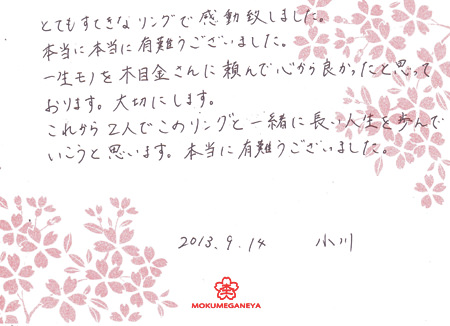 とてもすてきなリングで感動致しました。
本当に本当に有難うございました。
一生モノを木目金さんに頼んで心から良かったと思って
おります。大切にします。
これから2人でこのリングと一緒に長い人生を歩んで
いこうと思います。本当に有難うございました。
2013.9.14 小川
MOKUMEGANEYA